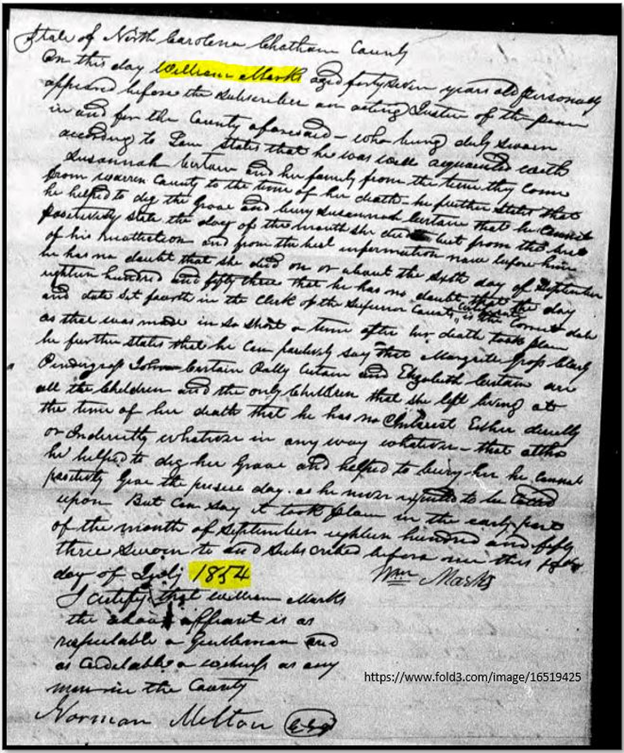 State of North Carolina Chatham County
On this day William Marks aged forty seven years old personally
appeared before the subscriber an acting Justice of the peace
in and for the County aforesaid – who being duly sworn
according to Law states that he was well aquainted with
Susannah Certain and her family from the time they come
from Warren County to the time of her death – he further states that
he helped to dig the Grave and bury Susannah Certain that he cannot
positively state the day of the month she died but from the best
of his recollection and from the best information now before him
he has no doubt that she died on or about the sixth day of September
eighteen hundred and fifty three that he has no doubt that the day
and date set fourth in the Clerk of the Superior County Certificate is the Correct date
as that was made in so short a time after her death took place
he further states that he can positively say that Margrite Clark
John Certain Polly Certain and Elizabeth Certain are
all the Children and the only Children that she left living at
the time of her death that he has no Interest Either directly
or Indirectly whatever in any way whatever – that altho
he helped to dig her Grave and helped to bury her he cannot
positively Give the presise day as he never expected to be Called
upon But Can say it took place in the early part
of the month of September eighteen hundred and fifty
three Sworn to and Subscribed before me this
day of July 1854 Wm Marks
I certify that William Marks
the above affiant is as
respectable a Gentleman and
as Credelable a witness as any
man in the County
Norman Melton Esq
https://www.fold3.com/image/16519425